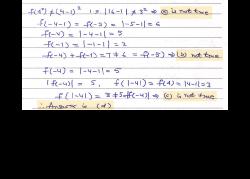 f(5²) ≠ (4-1)² ∵ |16-1| ≠ 3² ⇒ (a) is not true
f(-4-1) = f(-5) = |-5-1| = 6
f(-4) = |-4-1| = 5
f(-1) = |-1-1| = 2
f(-4) + f(-1) = 7 ≠ 6 = f(-5) ⇒ (b) not true
f(-4) = |-4-1| = 5
|f(-4)| = 5, f(|-4|) = f(4) = |4-1| = 3
f(|-4|) = 3 ≠ 5 = |f(-4)| ⇒ (c) is not true
∴ Answer is (d)